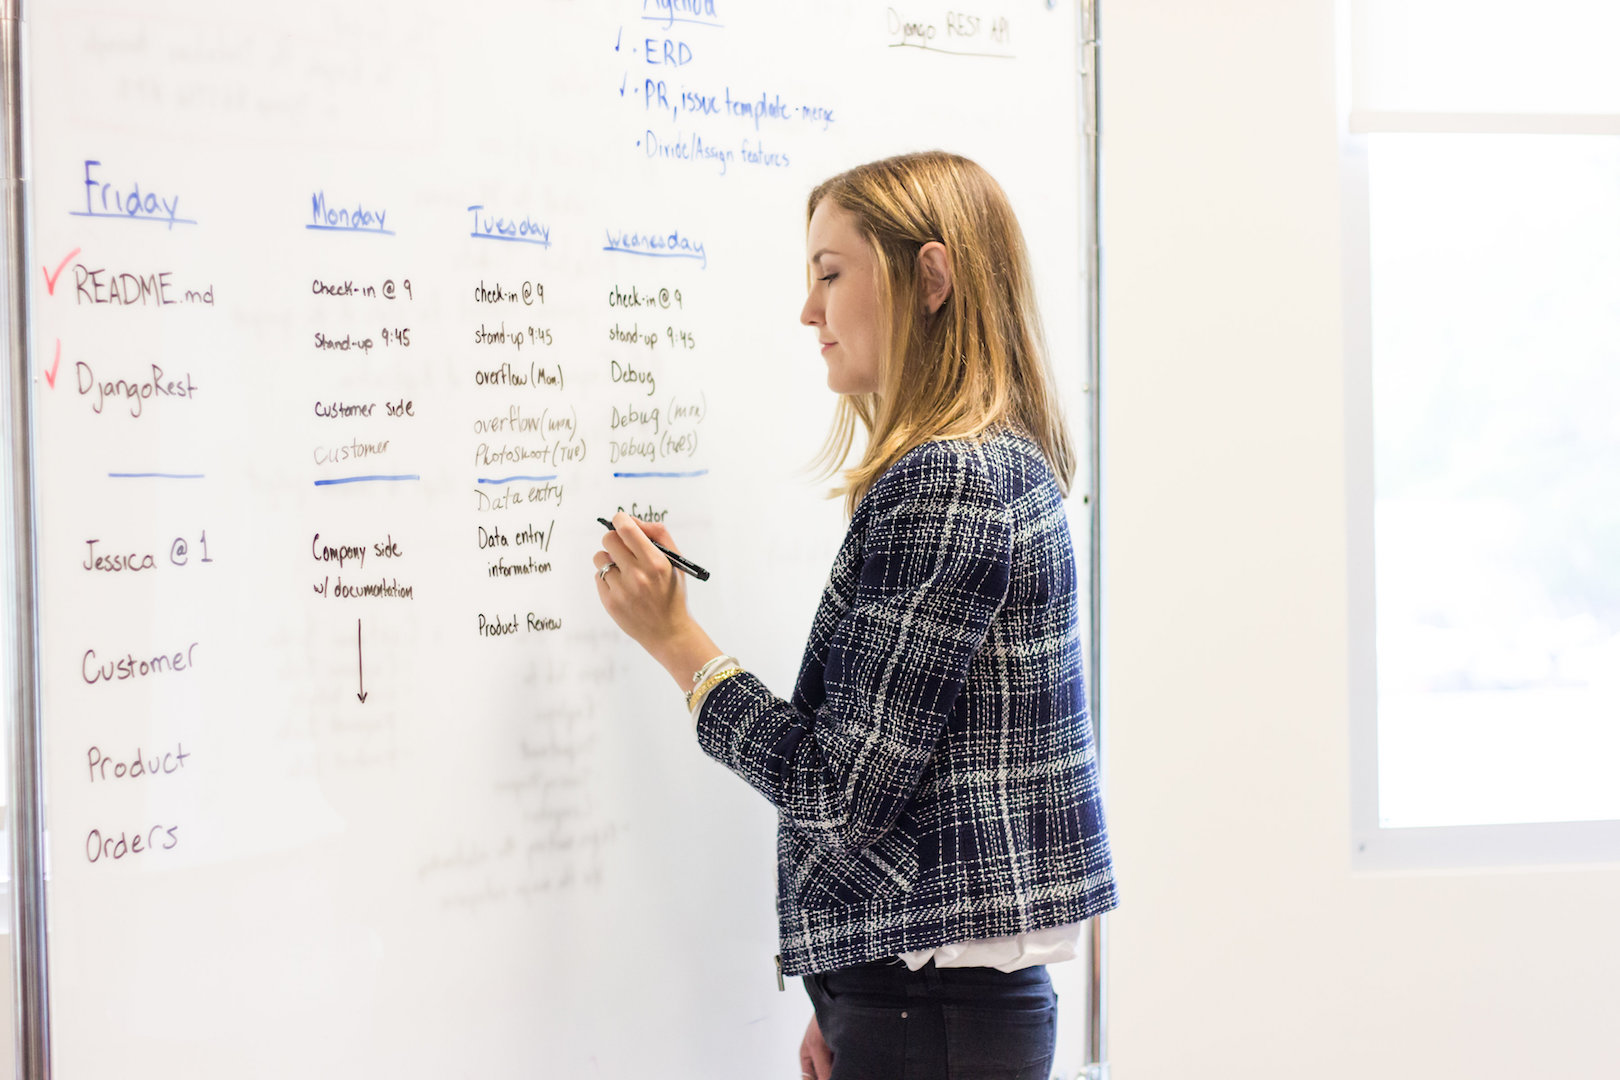 Agenda
✓ · ERD
✓ · PR, issue template - merge
· Divide/Assign features
Django REST API
Friday
✓ README.md
✓ DjangoRest
Jessica @ 1
Customer
Product
Orders
Monday
check-in @ 9
stand-up 9:45
customer side
customer
Company side
w/ documentation
Tuesday
check-in @ 9
stand-up 9:45
overflow (Mon.)
overflow (mon)
Photoshoot (Tue)
Data entry
Data entry/
information
Product Review
Wednesday
check-in @ 9
stand-up 9:45
Debug
Debug (mon)
Debug (tues)